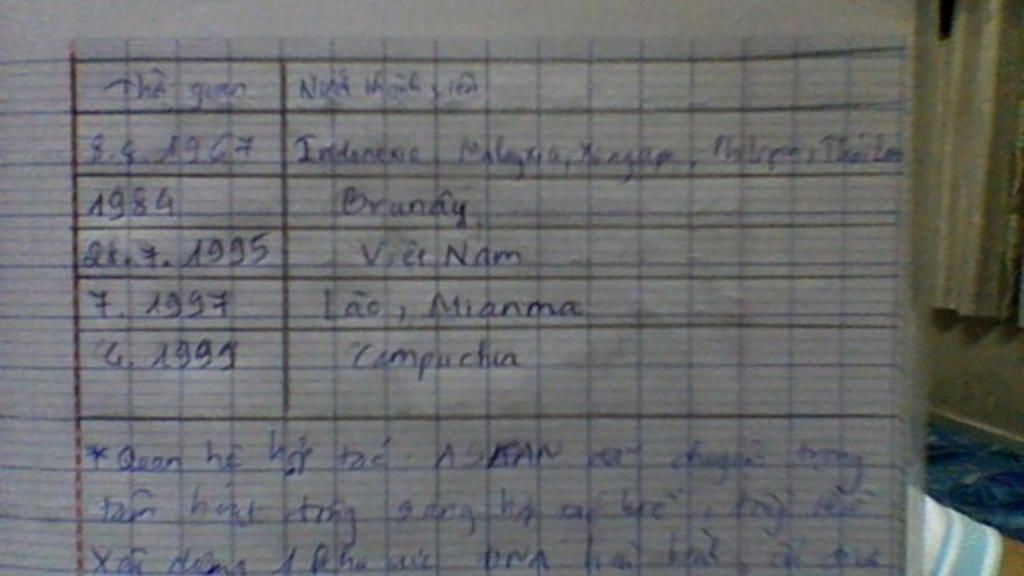 Thời gian Nước thành viên
8.8.1967 Indonexia, Malayxia, Xingapo, Philipin, Thái Lan
1984 Brunây
28.7.1995 Việt Nam
7.1997 Lào, Mianma
4.1999 Campuchia
* Quan hệ hợp tác ASEAN chuyển trọng
tâm hoạt động sang hợp
Xây dựng 1 khu vực ĐNA